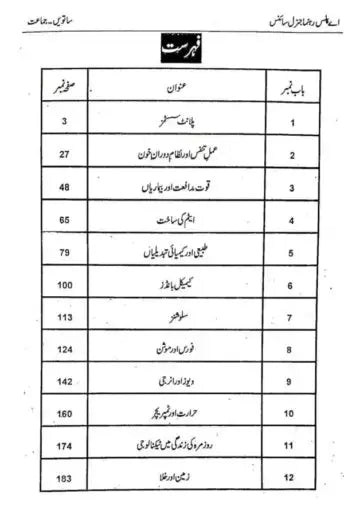 اے پلس رہنما جنرل سائنس ساتویں۔ جماعت
فہرست
باب نمبر عنوان صفحہ نمبر
1 پلانٹ سسٹمز 3
2 عملِ تنفس اور نظامِ دورانِ خون 27
3 قوت مدافعت اور بیماریاں 48
4 ایٹم کی ساخت 65
5 طبیعی اور کیمیائی تبدیلیاں 79
6 کیمیکل بانڈز 100
7 سلوشنز 113
8 فورس اور موشن 124
9 ویوز اور انرجی 142
10 حرارت اور ٹمپریچر 160
11 روزمرہ کی زندگی میں ٹیکنالوجی 174
12 زمین اور خلا 183